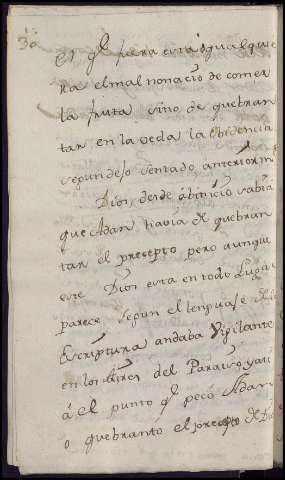 30
el qe. fuera esta o qualquie
ra el mal no nacio de comer
la fruta sino de quebran
tar en la veda la obediencia
segun dejo sentado anteriorm
Dios, desde abinicio sabia
que Adan havia de quebran
tar el precepto pero aunque
este Dios esta en todo Lugar
parece, segun el lenguaje de
Escriptura andaba Vigilante
en los Aires del Paraiso, y asi
á el punto qe. pecó Adan
o quebranto el precepto de Di